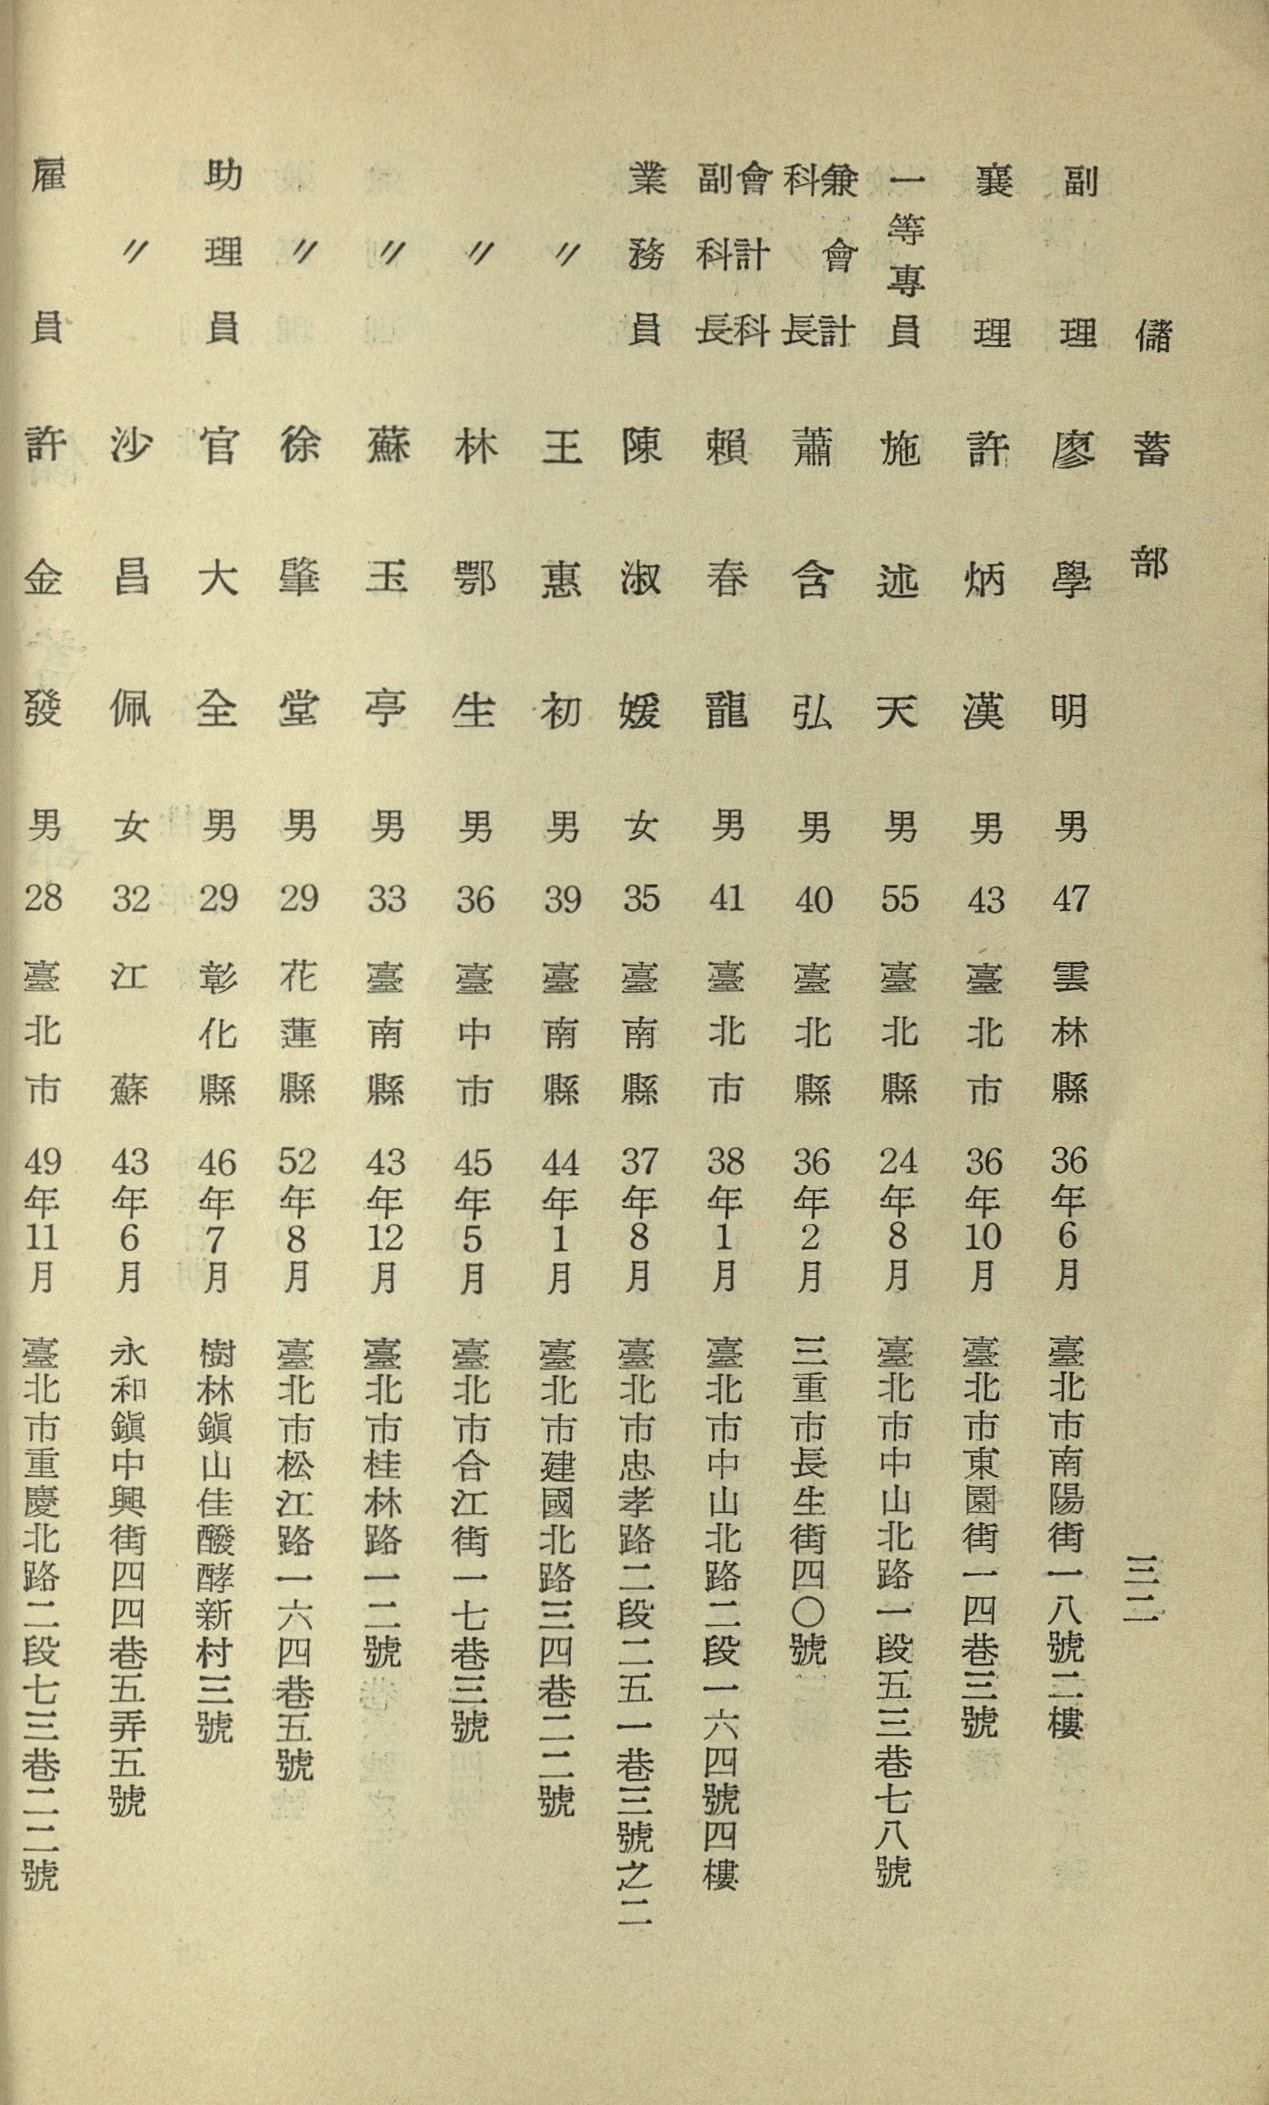 儲蓄部
三二
副理 廖學明 男 47 雲林縣 36年6月 臺北市南陽街一八號二樓
襄理 許炳漢 男 43 臺北市 36年10月 臺北市東園街一四巷三號
一等專員 施述天 男 55 臺北縣 24年8月 臺北市中山北路一段五三巷七八號
兼會計科長 蕭含弘 男 40 臺北縣 36年2月 三重市長生街四〇號
會計科副科長 賴春龍 男 41 臺北市 38年1月 臺北市中山北路二段一六四號四樓
業務員 陳淑媛 女 35 臺南縣 37年8月 臺北市忠孝路二段二五一巷三號之二
〃 王惠初 男 39 臺南縣 44年1月 臺北市建國北路三四巷二二號
〃 林鄂生 男 36 臺中市 45年5月 臺北市合江街一七巷三號
〃 蘇玉亭 男 33 臺南縣 43年12月 臺北市桂林路一二號
〃 徐肇堂 男 29 花蓮縣 52年8月 臺北市松江路一六四巷五號
助理員 官大全 男 29 彰化縣 46年7月 樹林鎮山佳醱酵新村三號
〃 沙昌佩 女 32 江蘇 43年6月 永和鎮中興街四四巷五弄五號
雇員 許金發 男 28 臺北市 49年11月 臺北市重慶北路二段七三巷二二號